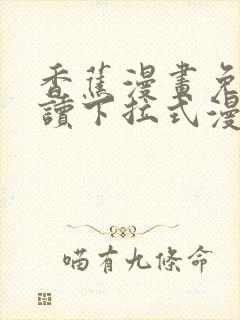 香蕉漫畫免
讀下拉式漫
喵有九條命